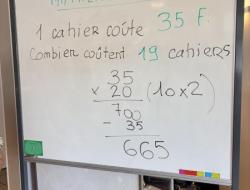 1 cahier coûte 35 F.
Combien coûtent 19 cahiers
35
× 20 (10x2)
700
- 35
665